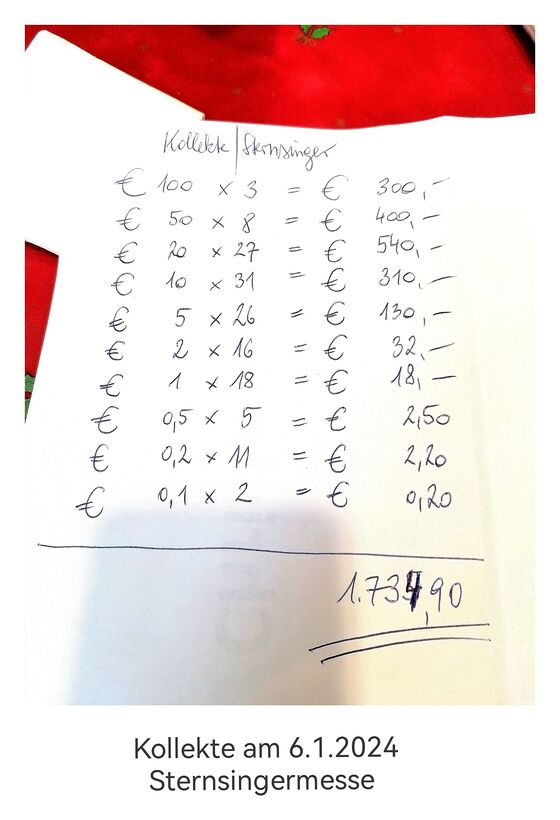 Kollekte | Sternsinger
€ 100 x 3 = € 300,-
€ 50 x 8 = € 400,-
€ 20 x 27 = € 540,-
€ 10 x 31 = € 310,-
€ 5 x 26 = € 130,-
€ 2 x 16 = € 32,-
€ 1 x 18 = € 18,-
€ 0,5 x 5 = € 2,50
€ 0,2 x 11 = € 2,20
€ 0,1 x 2 = € 0,20
1.734,90
Kollekte am 6.1.2024
Sternsingermesse